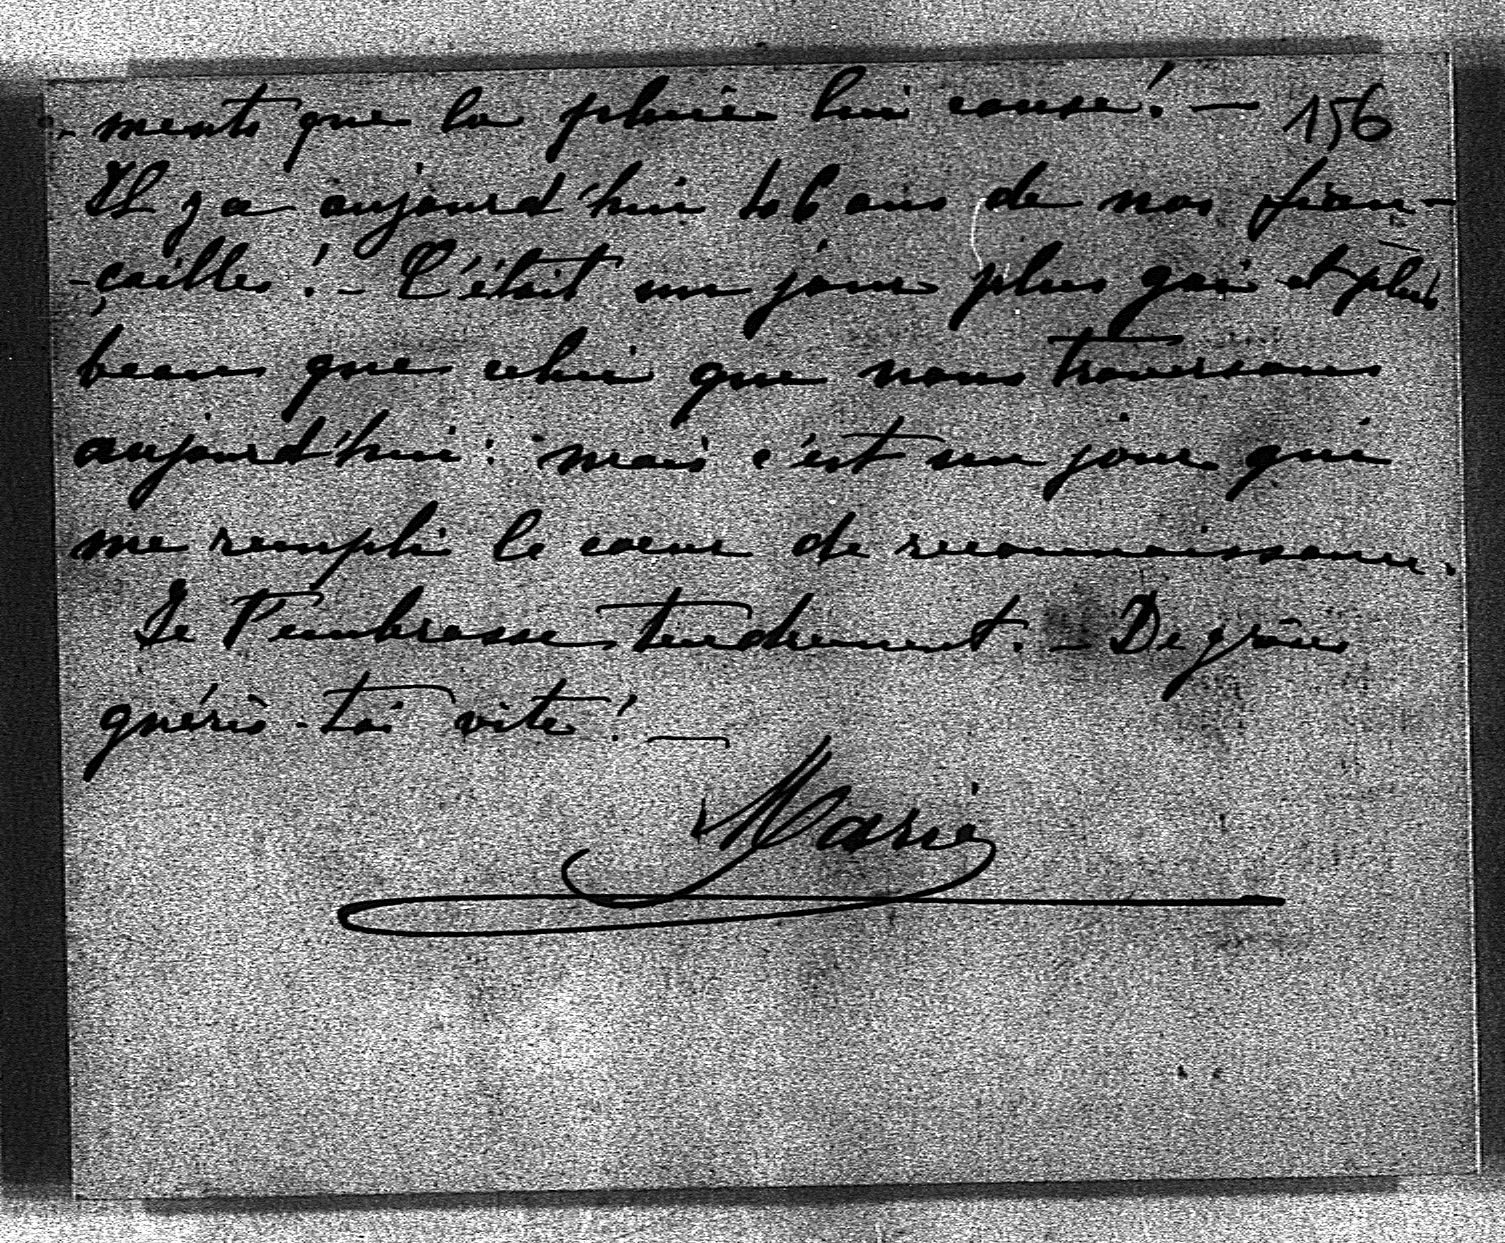 -ments que la pluie lui cause! — 156
Il y a aujourd'hui 46 ans de nos fian-
-çailles! - C'était un jour plus gai et plus
beau que celui que nous traversons
aujourd'hui: mais c'est un jour qui
me rempli le cœur de reconnaissance.
Je t'embrasse tendrement. - De grâce
guéris-toi vite! —
Marie